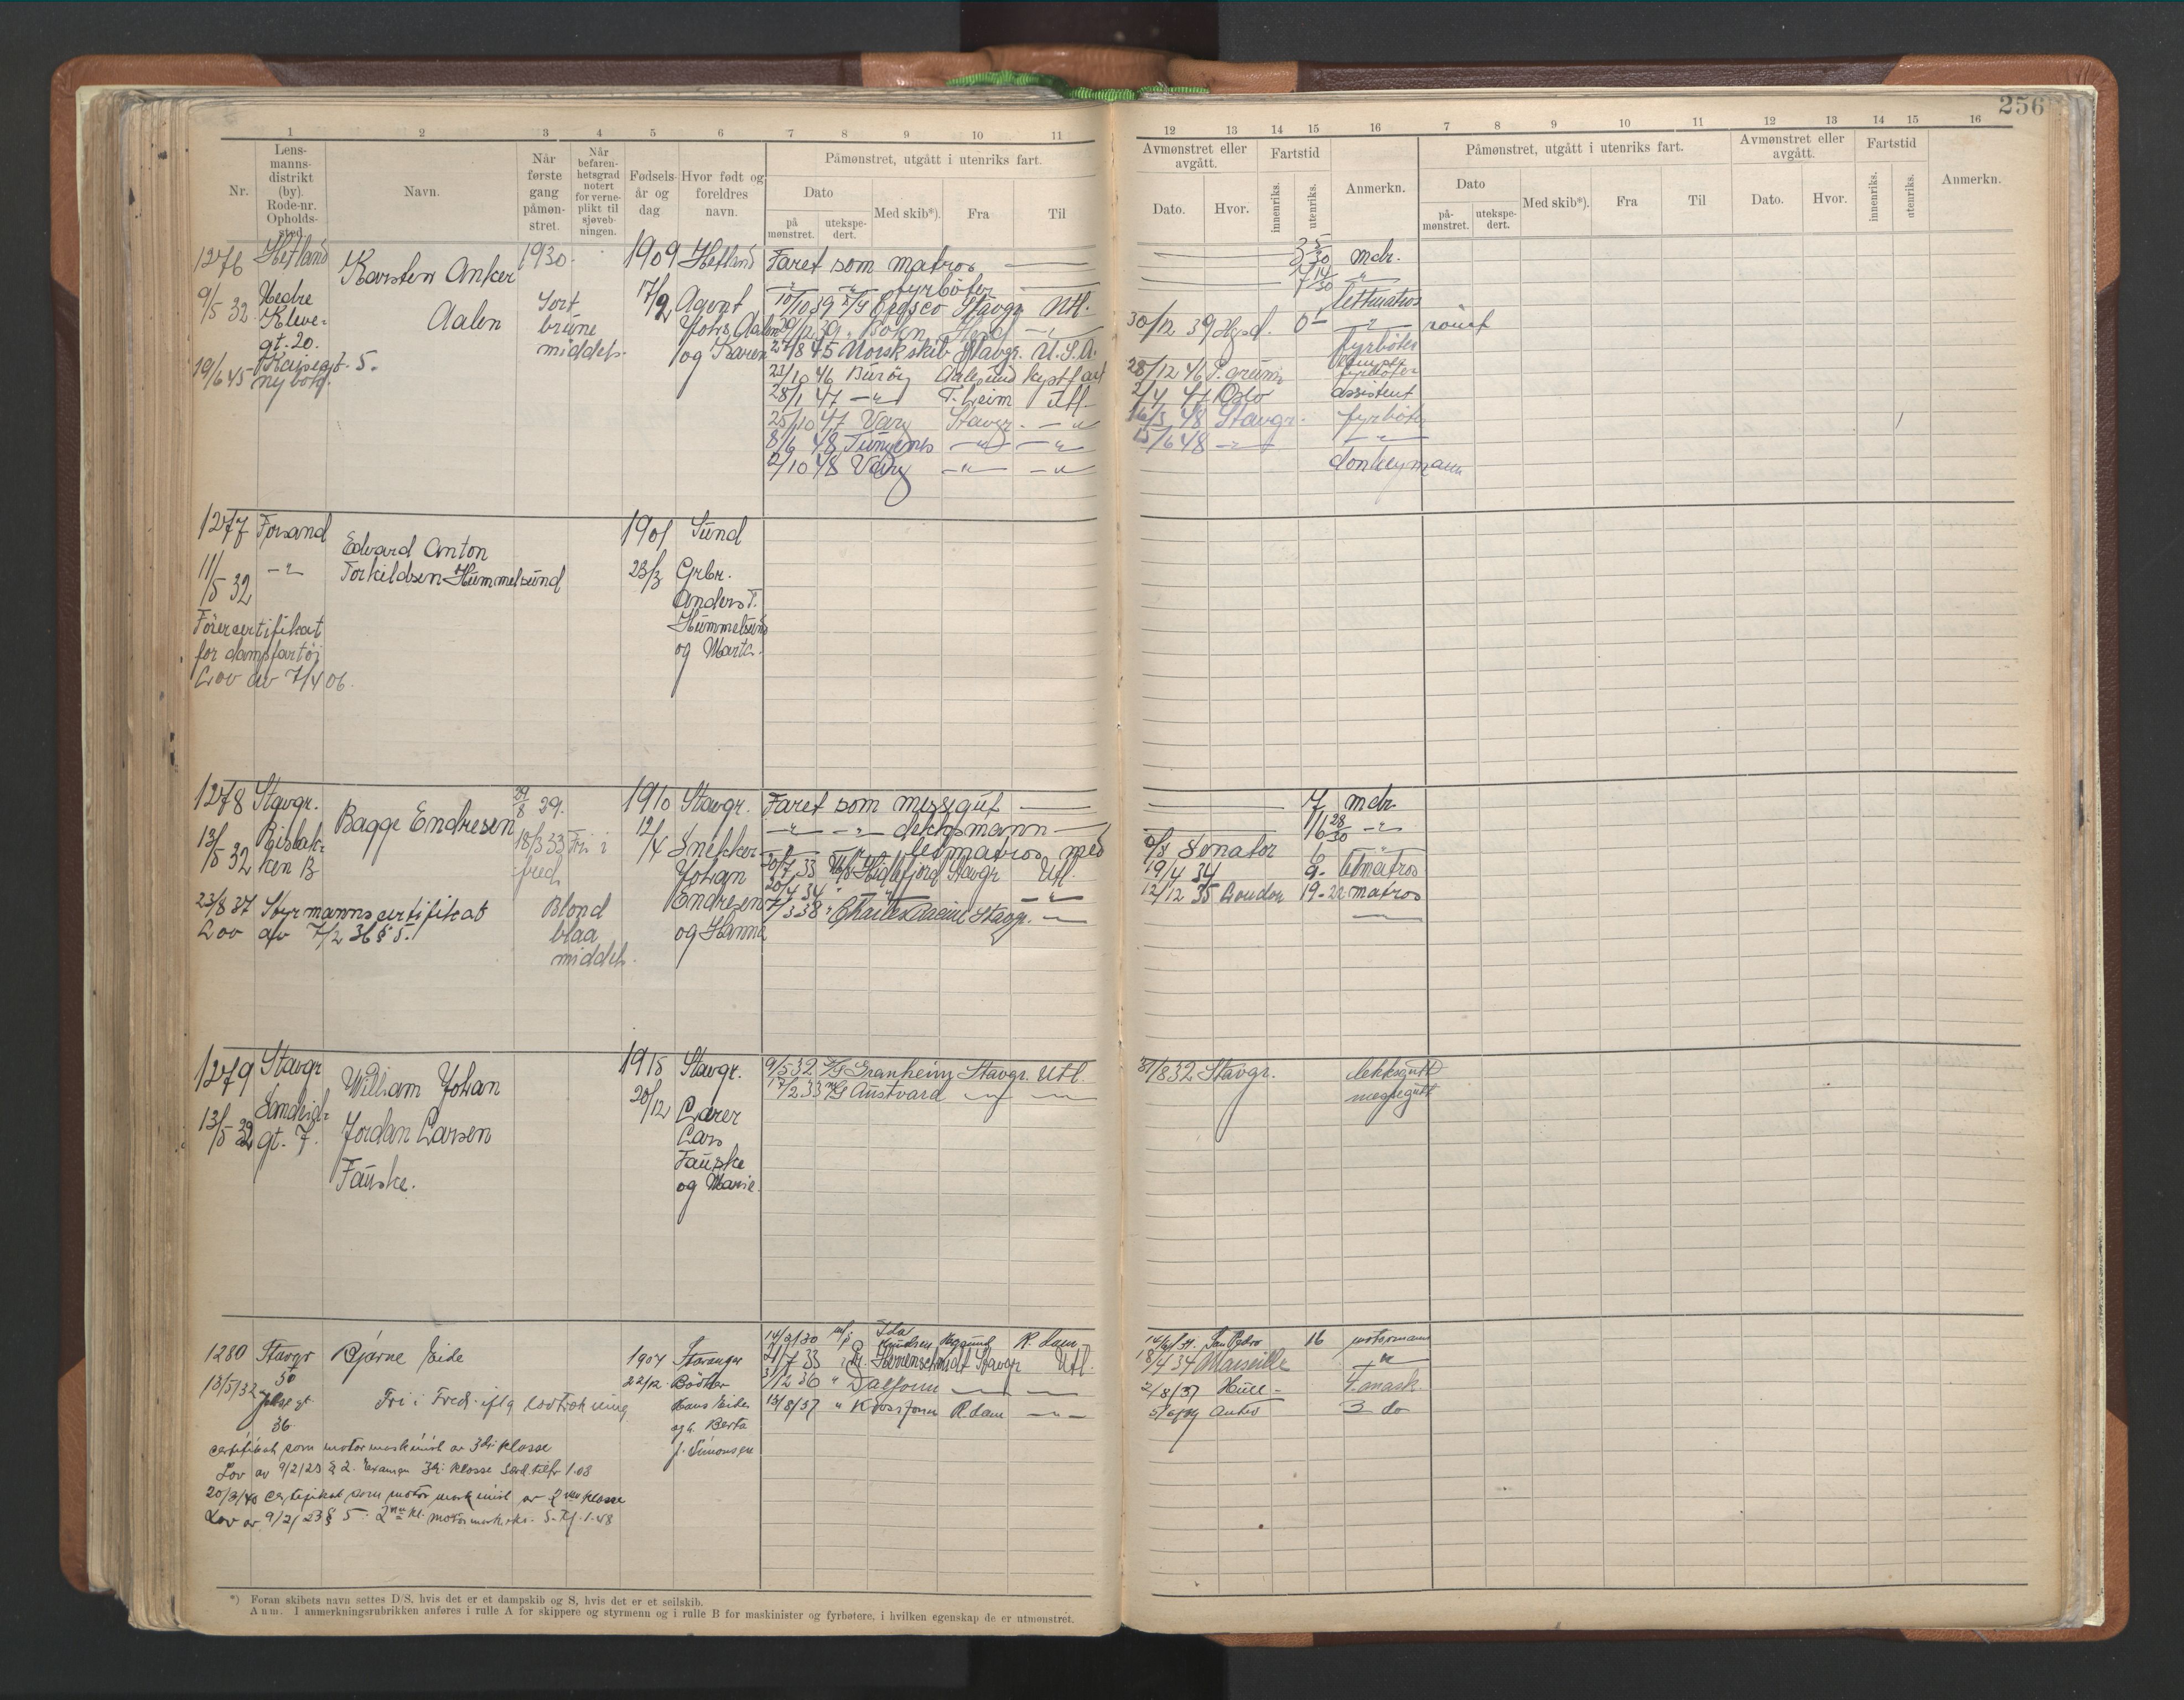 256
1 2 3 4 5 6 7 8 9 10 11
12 13 14 15 16 7 8 9 10 11 12 13 14 15 16
Nr.
Lens-
manns-
distrikt
(by).
Rode-nr.
Opholds-
sted.
Navn.
Når
første
gang
påmøn-
stret.
Når
befaren-
hetsgrad
notert
for verne-
plikt til
sjøveb-
ningen.
Fødsels-
år og
dag
Hvor født og
foreldres
navn.
Påmønstret, utgått i utenriks fart.
Dato
på
mønstret.
utekspe-
dert.
Med skib*).
Fra
Til
Avmønstret eller
avgått.
Dato.
Hvor.
Fartstid
innenriks.
utenriks.
Anmerkn.
Påmønstret, utgått i utenriks fart.
Dato
på-
mønstret.
utekspe-
dert.
Med skib*).
Fra
Til
Avmønstret eller
avgått.
Dato.
Hvor.
Fartstid
innenriks.
utenriks.
Anmerkn.
1276 Hetland
9/5 32 Nedre
Kleve-
gt. 20.
19/6 45 Kaisegt. 5.
ny bok.
Karsten Anker
Aalen
1930.
Sort
brune
middels.
1909
17/9
Hetland
Agent
Johs Aalen
og Karen
Faret som matros
" " fyrbøter
10/10 39 Stavgr Utl.
Bokn
27/8 45 Norsk skib Stavgr. U.S.A.
23/10 46 Burøy Aalesund kystfart
28/1 47 T.heim Utl.
25/10 47 Varg Stavgr. "
8/6 48 Tungenes " "
2/10 48 Varg " "
3 5/30 mdr.
7 14/30 "
lettmatros
30/12 39 "
fyrbøter
28/12 46
2/4 47 Oslo assistent
16/3 48 Stavgr. fyrbøter
15/6 48 " "
donkeymann
1277 Forsand
11/5 32 "
Førercertifikat
for dampfartøi
Lov av 7/4 06.
Edvard Anton
Torkildsen Hummelsund
1901
23/3
Sund
Grbr.
Anders T.
Hummelsund
og Marta.
1278 Stavgr.
13/5 32
ken B
23/8 37 Styrmannscertifikat
Lov av 7/2 36 § 5.
Bagge Endresen
29/8 29.
18/3 33 Fri i
fred
Blond
blaa
middels.
1910
12/4
Stavgr.
Snekker
Johan
Endresen
og Hanna
Faret som messegut
" " dekksmann
" letmatros med
20/7 33 Hidlefjord Stavgr Utl.
20/4 34 " "
7/3 38 " Charles Racine Stavgr. "
7 mdr.
11 28/30 "
6/8 Senator "
19/4 34 9- letmatros
12/12 35 London 19-22 matros
1279 Stavgr
13/5 32 gt. 7.
William Johan
Jordan Larsen
Fauske.
1915
20/12
Stavgr.
Lærer
Lars
Fauske
og Marie.
9/5 32 Granheim Stavgr. Utl.
17/2 33 Austvard " "
31/8 32 Stavgr. dekksgutt
messegutt
1280 Stavgr
50
13/5/32
36
Bjarne Eide
Fri i Fred. iflg lovtrekning
1907
22/12
Stavanger
Bødker
Hans Eide
og h. Berta
f. Simonsen
certifikat som motormaskinist av 3die klasse
Lov av 9/2/23 § 2. Examen 3die klasse
20/3/40 certifikat som motormaskinist av 2den klasse
Lov av 9/2/23 § 5. 2nen kl.
14/2/30 m/s Ida
Knudsen Haugesund R.dam
21/7 33 Stavgr Utl.
3/12 36 " Dalfonn " "
13/8/37 " Kvosfonn R.dam "
San Pedro 16 motormann
18/4 34 Marseille "
2/8/37 Hull 4. mask
3 do
*) Foran skibets navn settes D/S, hvis det er et dampskib og S, hvis det er et seilskib.
Anm. I anmerkningsrubrikken anføres i rulle A for skippere og styrmenn og i rulle B for maskinister og fyrbøtere, i hvilken egenskap de er utmønstret.